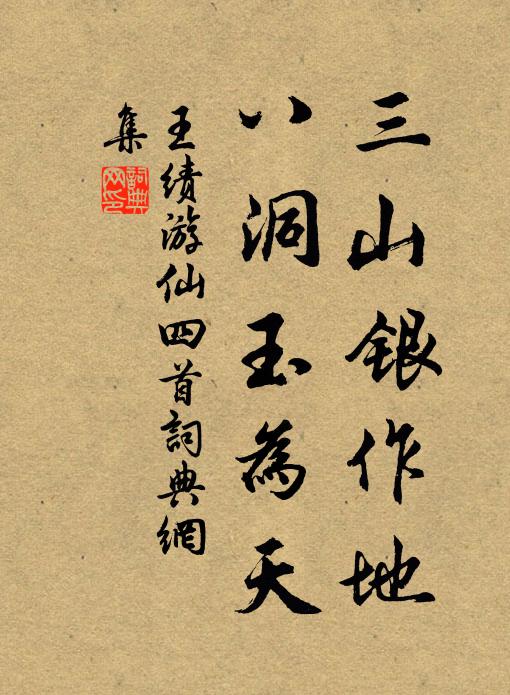 三山銀作地
八洞玉為天
王績游仙四首詞典網
集
詞典
网印